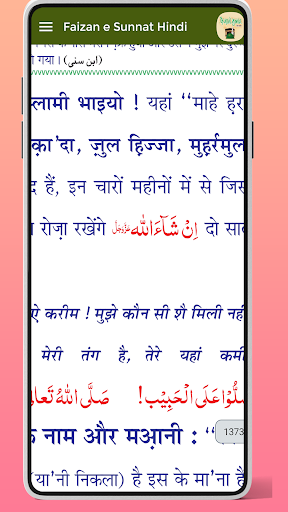 Faizan e Sunnat Hindi
गया। (ابن سنی)
लामी भाइयो ! यहां “माहे ह़र
क़ा'दा, ज़ुल ह़िज्जा, मुह़र्रमुल
द हैं, इन चारों महीनों में से जिस
रोज़ा रखेंगे اِنْ شَآءَاللّٰه عَزَّوَجَلَّ दो सा
ऐ करीम ! मुझे कौन सी शै मिली नही
मेरी तंग है, तेरे यहां कमी
صَلُّوْا عَلَى الْحَبِيْب! صَلَّى اللّٰهُ تَعَالٰى
के नाम और मआ़नी : “
1373
(या'नी निकला) है इस के मा'ना है